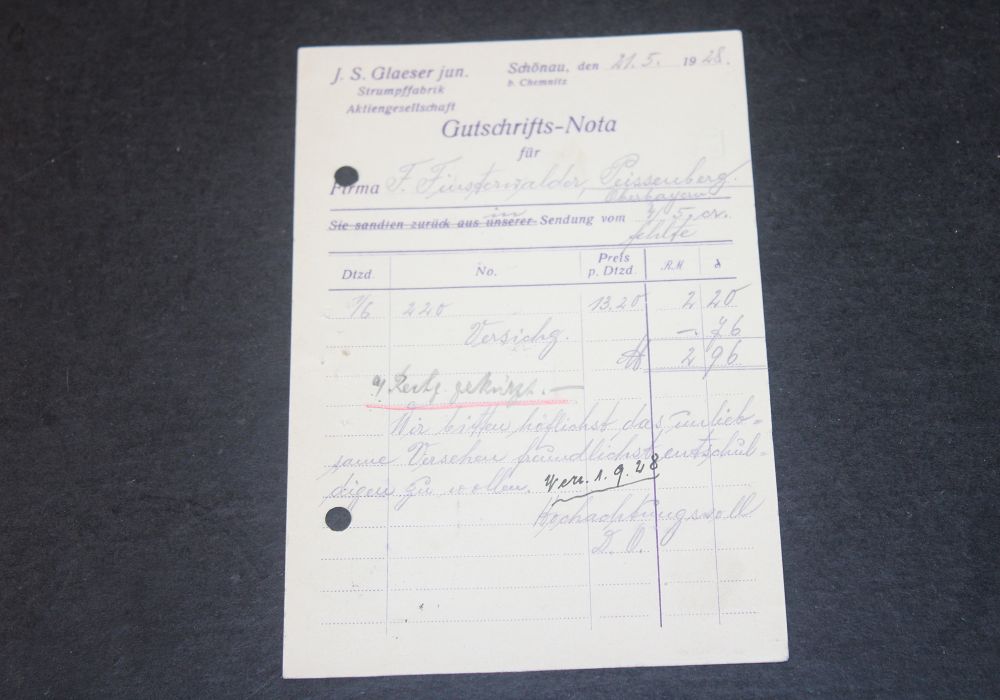 J. S. Glaeser jun.
Strumpffabrik
Aktiengesellschaft
Schönau, den 21. 5. 1928.
b. Chemnitz
Gutschrifts-Nota
für
Firma F. Finsterwalder, Peissenberg.
Oberbayern
Sie sandten zurück aus unserer in Sendung vom 4/5. cr.
fehlte
Dtzd. No. Preis p. Dtzd. RM ₰
1/6 220 13.20 2 20
Versichg. -. 76
M 2 96
a/ Rechg. gekürzt. —
Wir bitten höflichst das unlieb=
same Versehen freundlichst entschul=
digen zu wollen.
Verr. 1. 9. 28
Hochachtungsvoll
D. O.